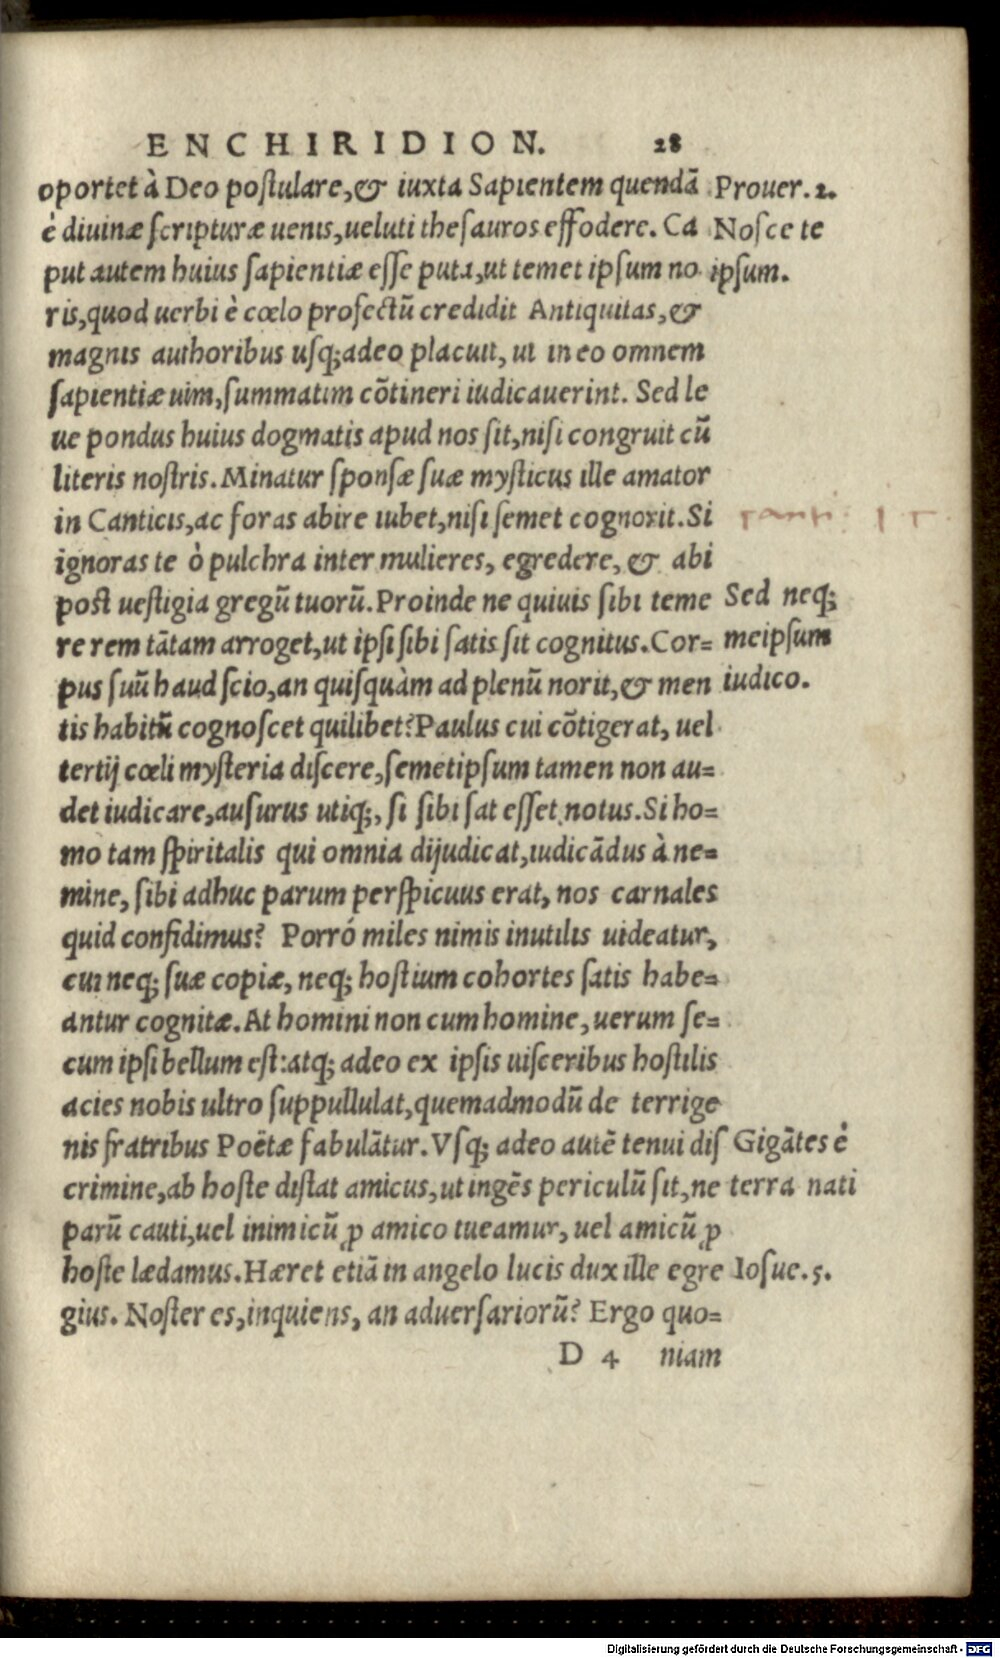 ENCHIRIDION. 28
oportet à Deo postulare, & iuxta Sapientem quendā Prouer. 2.
è diuinæ scripturæ uenis, ueluti thesauros effodere. Ca Nosce te
put autem huius sapientiæ esse puta, ut temet ipsum no ipsum.
ris, quod uerbi è cœlo profectū credidit Antiquitas, &
magnis authoribus usq; adeo placuit, ut in eo omnem
sapientiæ uim, summatim cōtineri iudicauerint. Sed le
ue pondus huius dogmatis apud nos sit, nisi congruit cū
literis nostris. Minatur sponsæ suæ mysticus ille amator
in Canticis, ac foras abire iubet, nisi semet cognorit. Si
ignoras te ò pulchra inter mulieres, egredere, & abi
post uestigia gregū tuorū. Proinde ne quiuis sibi teme Sed neq;
re rem tātam arroget, ut ipsi sibi satis sit cognitus. Cor= meipsum
pus suū haud scio, an quisquàm ad plenū norit, & men iudico.
tis habitū cognoscet quilibet? Paulus cui cōtigerat, uel
tertij cœli mysteria discere, semetipsum tamen non au=
det iudicare, ausurus utiq;, si sibi sat esset notus. Si ho=
mo tam spiritalis qui omnia dijudicat, iudicādus à ne=
mine, sibi adhuc parum perspicuus erat, nos carnales
quid confidimus? Porró miles nimis inutilis uideatur,
cui neq; suæ copiæ, neq; hostium cohortes satis habe=
antur cognitæ. At homini non cum homine, uerum se=
cum ipsi bellum est: atq; adeo ex ipsis uisceribus hostilis
acies nobis ultro suppullulat, quemadmodū de terrige
nis fratribus Poëtæ fabulātur. Vsq; adeo autē tenui dis Gigātes è
crimine, ab hoste distat amicus, ut ingēs periculū sit, ne terra nati
parū cauti, uel inimicū ꝓ amico tueamur, uel amicū ꝓ
hoste lædamus. Hæret etiā in angelo lucis dux ille egre Iosue. 5.
gius. Noster es, inquiens, an aduersariorū? Ergo quo=
D 4 niam
Digitalisierung gefördert durch die Deutsche Forschungsgemeinschaft - DFG